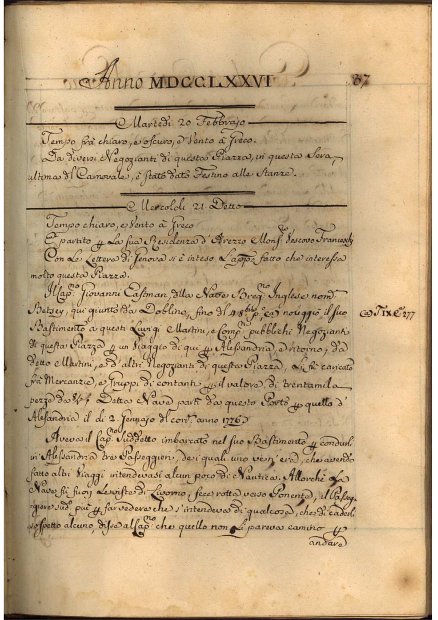 Anno MDCCLXXVI
67
Martedì 20 Febbrajo
Tempo frà chiaro, e oscuro, e Vento à Greco.
Da diversi Negozianti di questa Piazza, in questa Sera
ultima di Carnovale, è stato dato Festino alle Stanze.
Mercoledì 21 Detto
Tempo chiaro, e Vento à Greco
È partito p la sua Residenza d'Arezzo Monsr. Vescovo Franceschi
Con Le Lettere di Genova si è inteso fatto che interessa
molto questa Piazza.
Il Capno. Giovanni Eastman, della Nave Inglese nomta.
Betsey, qui giunto da Dobline, fino del noleggiò il suo
Bastimento à questi Luigi Martini, e Compi. pubblichi Negozianti
di questa Piazza p un viaggio di qui p Alessandria, e ritorno, da
detto Martini, e d'altri Negozianti di questa Piazza, Li fù caricato
frà Mercanzie, e gruppi di contanti p il valore di trentamila
pezze da 8/r Detta Nave partì da questo Porto p quello d'
Alessandria il dì 2 Gennajo del corrte. anno 1776
Aveva il Capno. Suddetto imbarcato nel suo Bastimento p condurli
in Alessandria tre Passeggieri, de i quali uno ven'era, che avendo
fatto altri Viaggi intendevasi alcun poco di Nautica. Allorchè La
Nave fù fuori Le viste di Livorno fece rotta verso Ponente, il Passeg-
giere sudo. p far vedere che s'intendeva di qualcosa, che di caderli
sospetto alcuno, disse al Capno. che quello non Le pareva camino p
andare
277